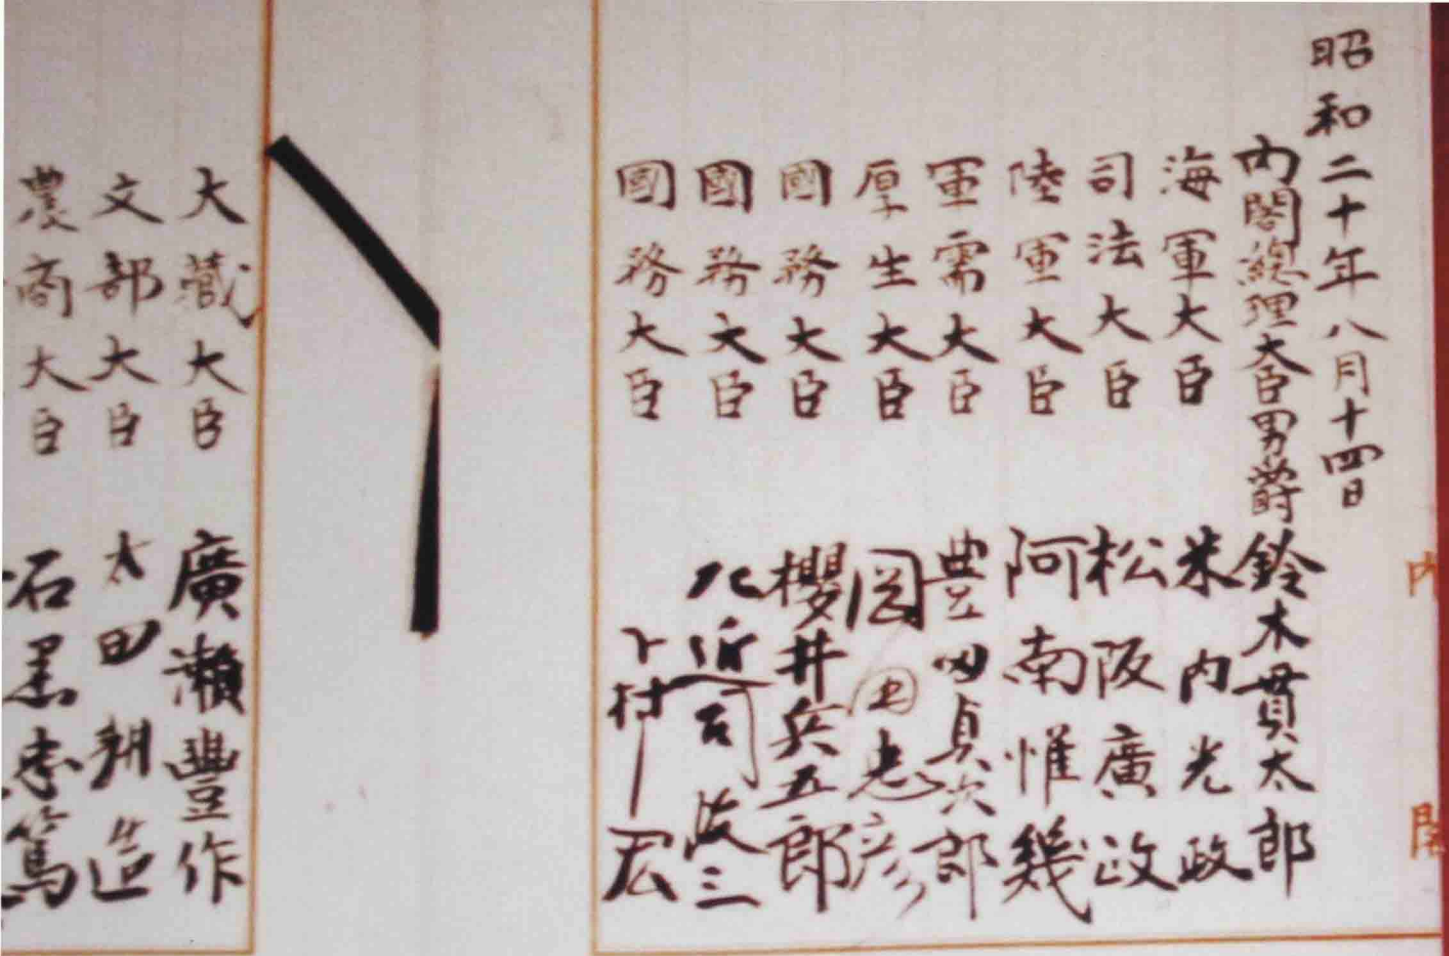 昭和二十年八月十四日
内閣總理大臣男爵 鈴木貫太郎
海軍大臣 米内光政
司法大臣 松阪廣政
陸軍大臣 阿南惟幾
軍需大臣 豊田貞次郎
厚生大臣 岡田忠彦
國務大臣 櫻井兵五郎
國務大臣 左近司政三
國務大臣 下村宏
大藏大臣 廣瀨豐作
文部大臣 太田耕造
農商大臣 石黒忠篤
内閣